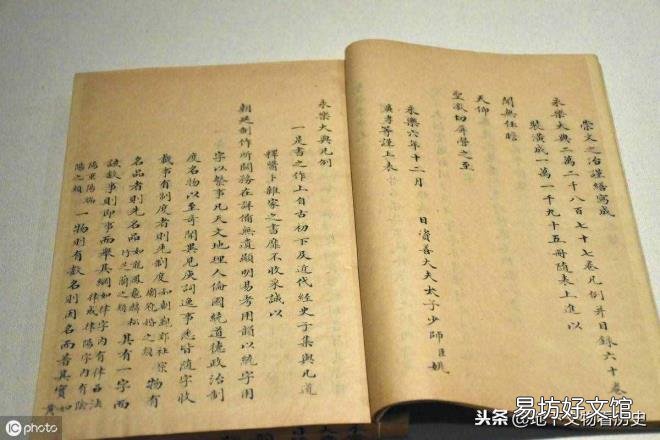 崇文之治謹繕寫成
永樂大典二萬二千八百七十七卷凡例并目錄六十卷
裝潢成一萬一千九十五冊隨表上進以
聞無任瞻
天仰
聖激切屏營之至
永樂六年十二月 日資善大夫太子少師臣姚
廣孝等謹上表
永樂大典凡例
一是書之作上自古初下及近代經史子集與凡道
釋醫卜雜家之書靡不收采誠以
朝廷制作所關務在詳備無遺顯明易考用韻以統字用
字以繫事凡天文地理人倫國統道德政治制
度名物以至奇聞異見廋詞逸事悉皆隨字收
載事有制度者則先制度如朝覲郊社宗廟冠婚之類物有
名品者則先名品如龍鳳龜麟松竹芝蘭之類其有一字而
該數事則即事而舉其綱如律字內有律呂法律戒律陽字內有陰
陽重陽端陽之類一物則有數名則因名而著其實如黃
iCphoto
头条@地下文物看历史
易坊好文馆